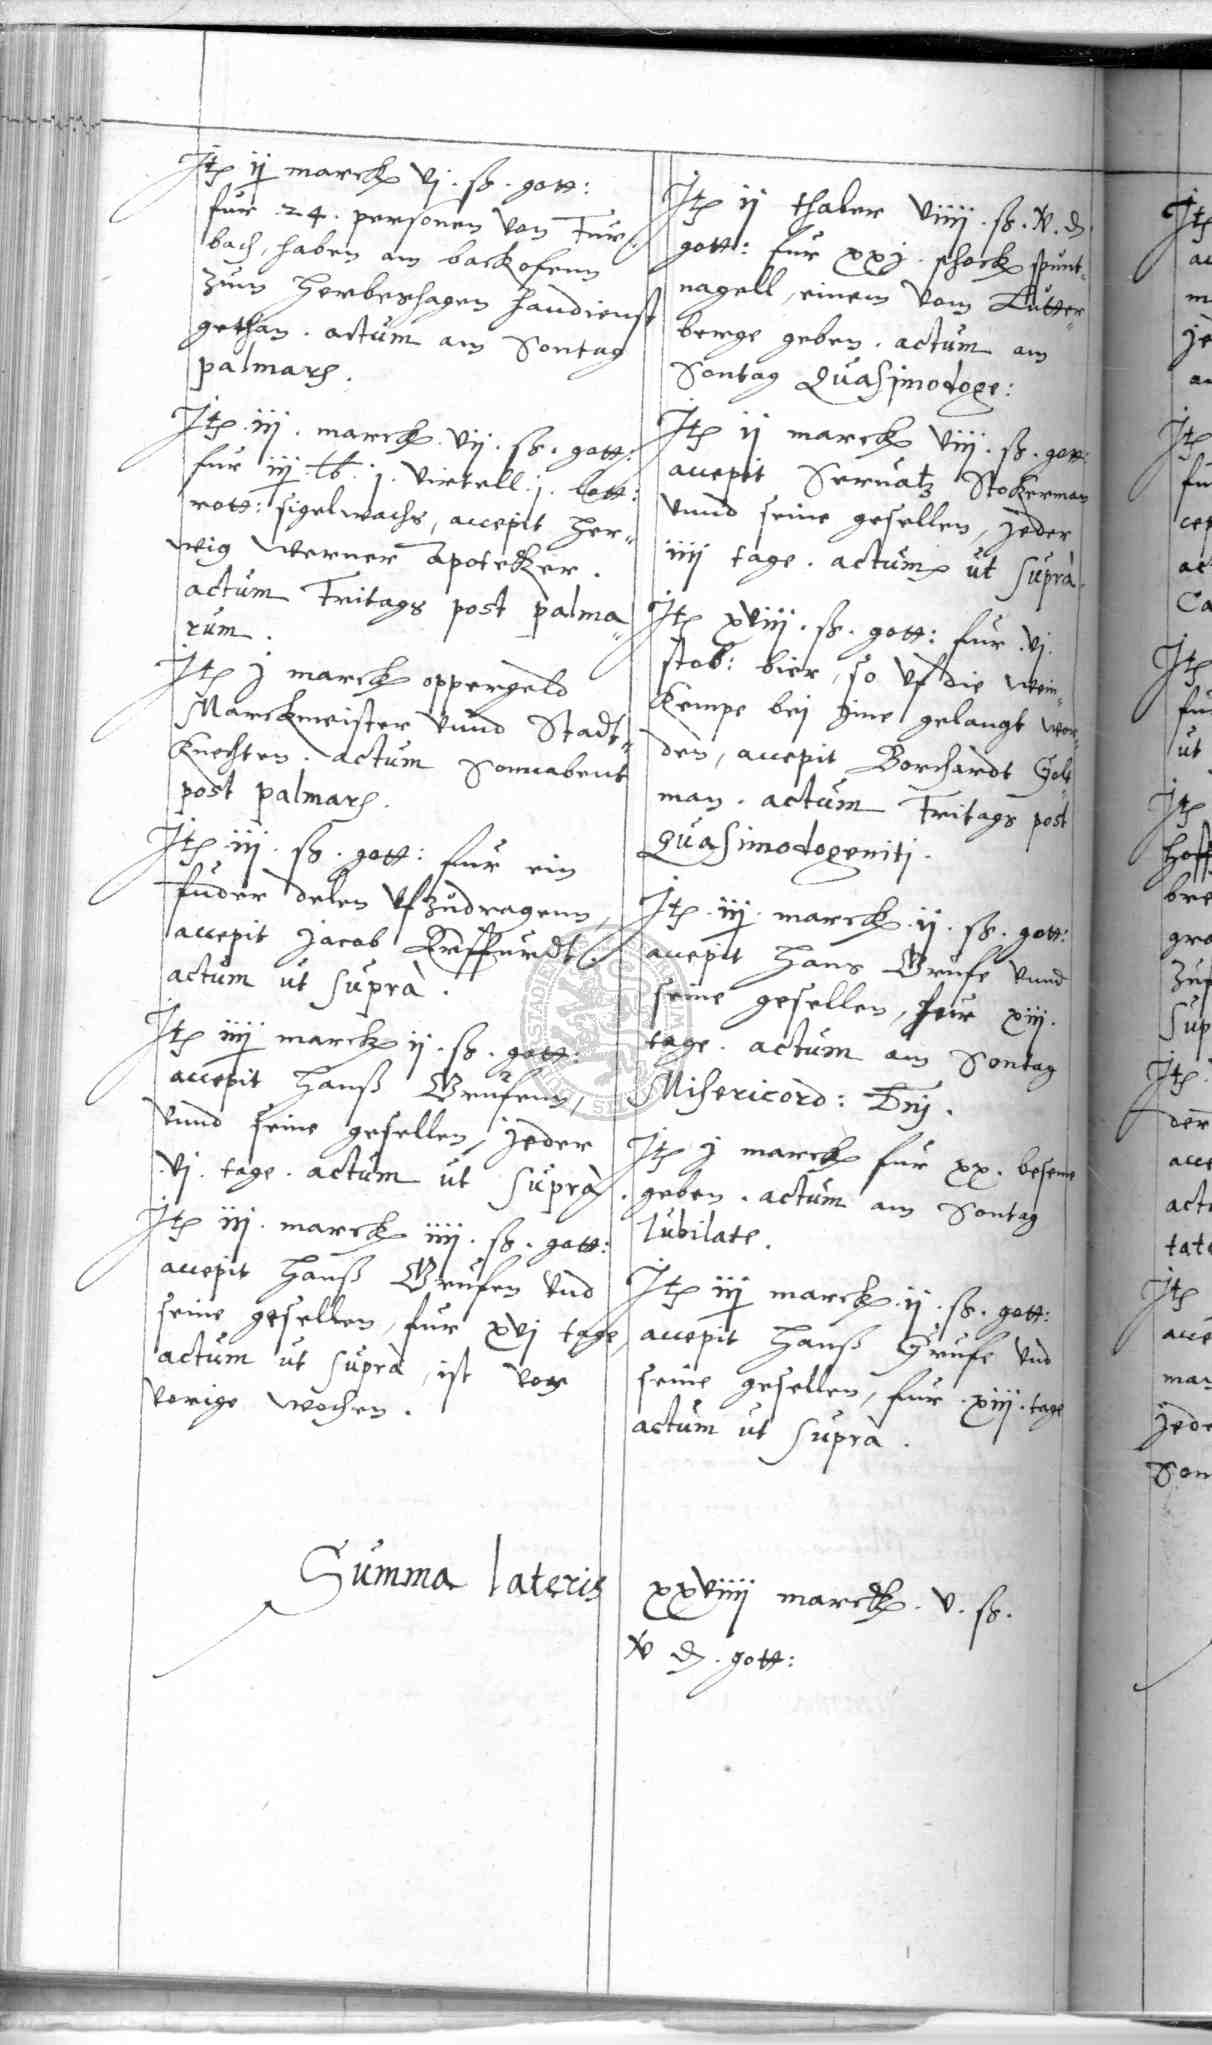 Itē ij marck vj. ß. gott:
fur .24. personen von Fur-
bach, haben am backofenn
zum Herbeshagen handienst
gethan. actum am Sontag
palmarū.
Itē .iij. marck. vij. ß. gott:
fur iij lb. j. virtell. j. lott:
rott: sigelwachs, accepit Her-
wig Werner Apotecker.
actum Fritags post palma-
rum.
Itē j marck oppergeld
Marckmeister vnnd Stadt-
knechten. actum Sonnabent
post palmarū.
Itē .iij. ß. gott: fur ein
fuder delen vfzudragenn,
accepit Jacob Erffurdt.
actum ut suprà.
Itē iiij marck ij. ß. gott:
accepit Hanß Grufenn,
vnnd seine gesellen, jeder
.vj. tage. actum ut suprà.
Itē iij. marck iiij. ß. gott:
accepit Hanß Grufen vnd
seine gesellen, fur xvj tage,
actum ut suprà, ist von
vorige wochen.
Itē ij thaler viiij. ß. v. d.
gott: fur xxj. schock spunt-
nagell, einem vom Lutter-
berge geben. actum am
Sontag Quasimodoge:
Itē ij marck viij. ß. gott:
accepit Servatz Stokerman
vnnd seine gesellen, jeder
iiij tage. actum ut suprà.
Itē xviij. ß. gott: fur .vj.
stob: bier, so vf die Wein-
kempe bei jme gelangt wor-
den, accepit Borchardt
man. actum Fritags post
Quasimodogeniti.
Itē .iij. marck .ij. ß. gott:
accepit Hans Grufe vnnd
seine gesellen, fur xiij.
tage. actum am Sontag
Misericord: Dnj.
Itē j marck fur xx. beseme
geben. actum am Sontag
Iubilate.
Itē iij marck .ij. ß. gott:
accepit Hanß Grufe vnd
seine gesellen, fur .xiij. tage
actum ut suprà.
Summa lateris xxviiij marck. v. ß.
v d. gott: